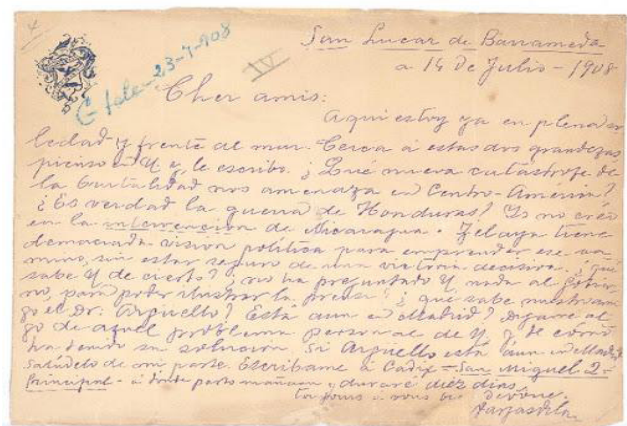 4
C tele-23-7-908
IV
San Lucar de Barrameda
a 14 de Julio - 1908
Cher amis:
Aqui estoy ya en plena so
ledad y frente al mar. Cerca á estas dos grandezas
pienso en V. y le escribo. ¿Qué nueva catástrofe de
la brutalidad nos amenaza en Centro-América?
¿Es verdad la guerra de Honduras? Yo no créo
en la intervención de Nicaragua. Zelaya tiene
demaciada vision política para emprender ese ca
mino, sin estar seguro de una victoria decisiva. ¿qué
sabe V. de cierto? ¿no ha preguntado V. nada al Gobier
no, para poder ilustrar la prensa? ¿qué sabe nuestro ami
go el Dr. Arguello? Está aun en Madrid? Digame al
go de aquel problema personal de V. y de cómo
ha tenido su solucion. Si Arguello está aun en Madrid
Salúdelo de mi parte. Escribame á Cadix - San Miguel 2-
Principal - á donde parto mañana y duraré diez dias
Toujours a vous bis dévoué
VargasVila